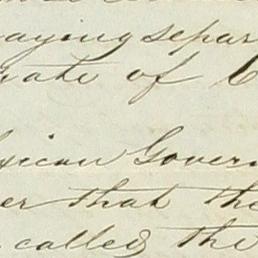 aying separ
ate of C
xican Govern
er that the
called the